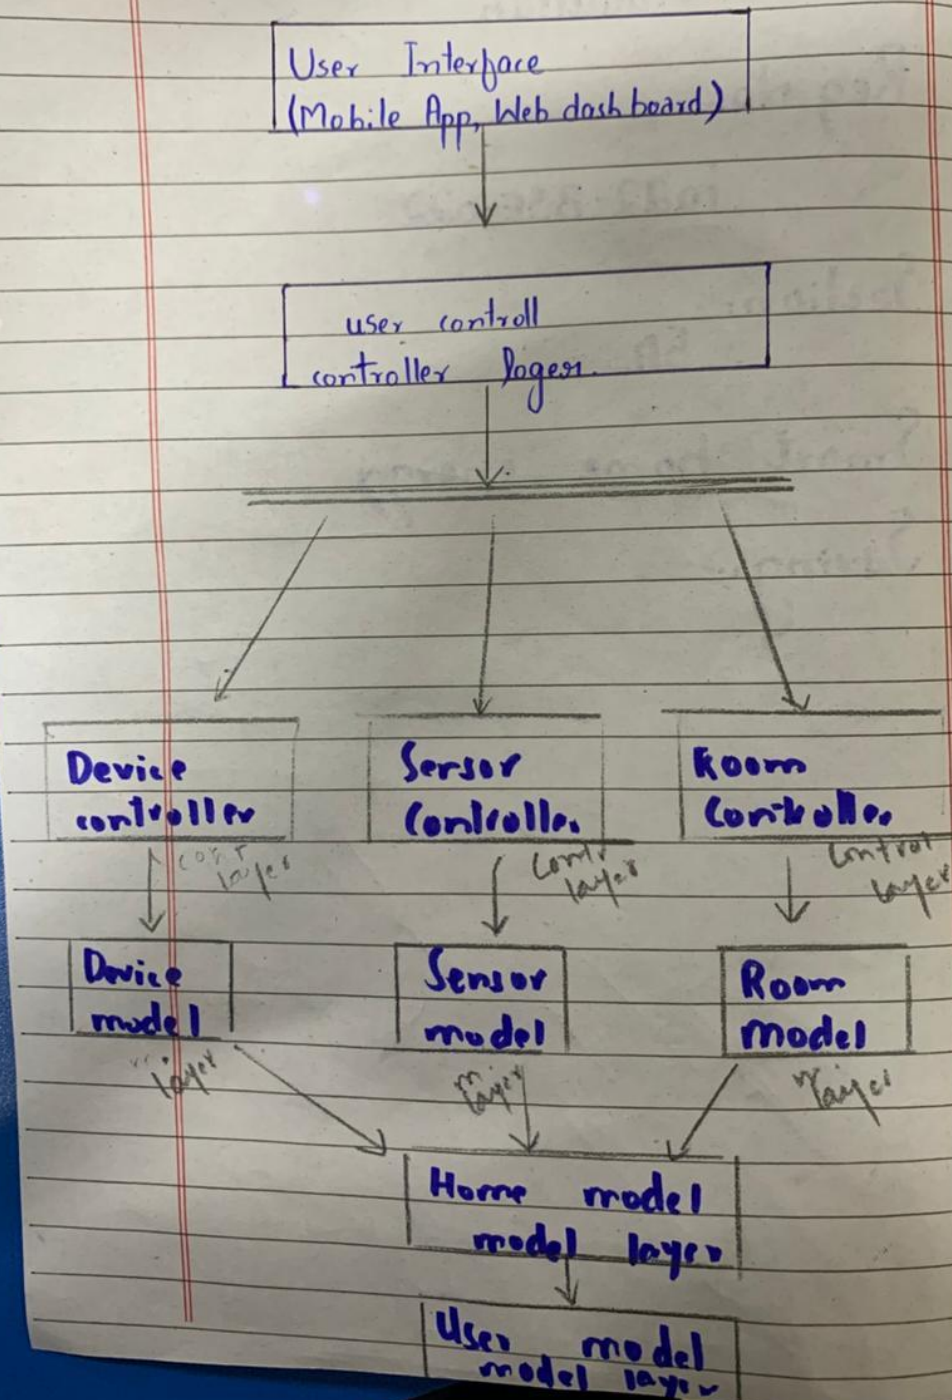 User Interface
(Mobile App, Web dashboard)
user controll
controller loger.
Device
controller
Sensor
Controller
Room
Controller
cont
layer
contr
layer
Control
layer
Device
model
Sensor
model
Room
model
layer
m
layer
m
layer
Home model
model layer
User model
model layer